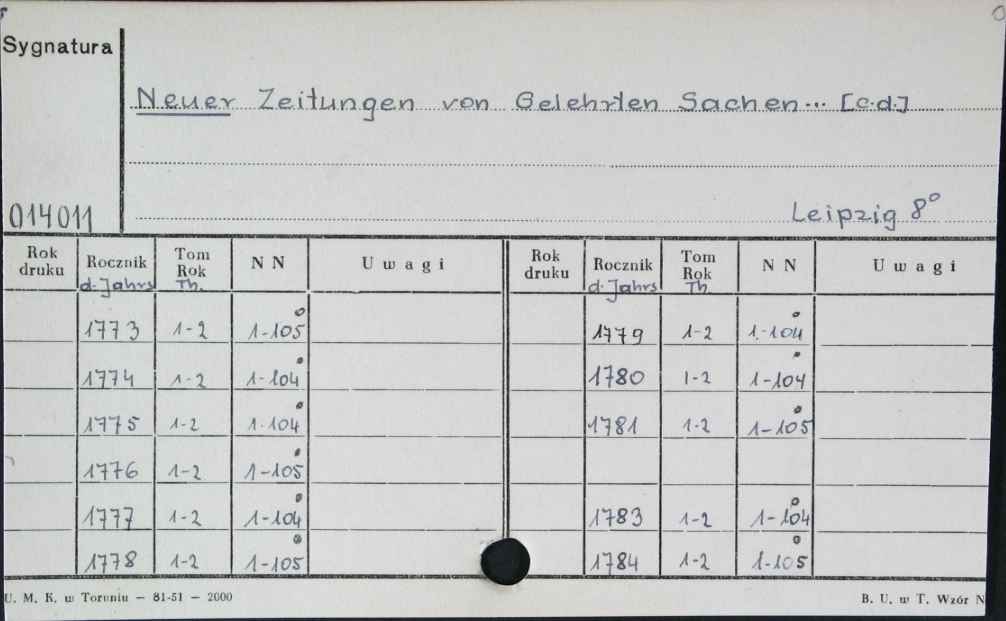 Sygnatura
Neuer Zeitungen von Gelehrten Sachen... [c.d.]
014011
Leipzig 8°
Rok druku Rocznik d. Jahrs Tom Rok Th. NN Uwagi Rok druku Rocznik d. Jahrs Tom Rok Th. NN Uwagi
1773 1-2 1-105 1779 1-2 1-104
1774 1-2 1-104 1780 1-2 1-104
1775 1-2 1-104 1781 1-2 1-105
1776 1-2 1-105
1777 1-2 1-104 1783 1-2 1-104
1778 1-2 1-105 1784 1-2 1-105
U. M. K. w Toruniu — 81-51 — 2000 B. U. w T. Wzór N